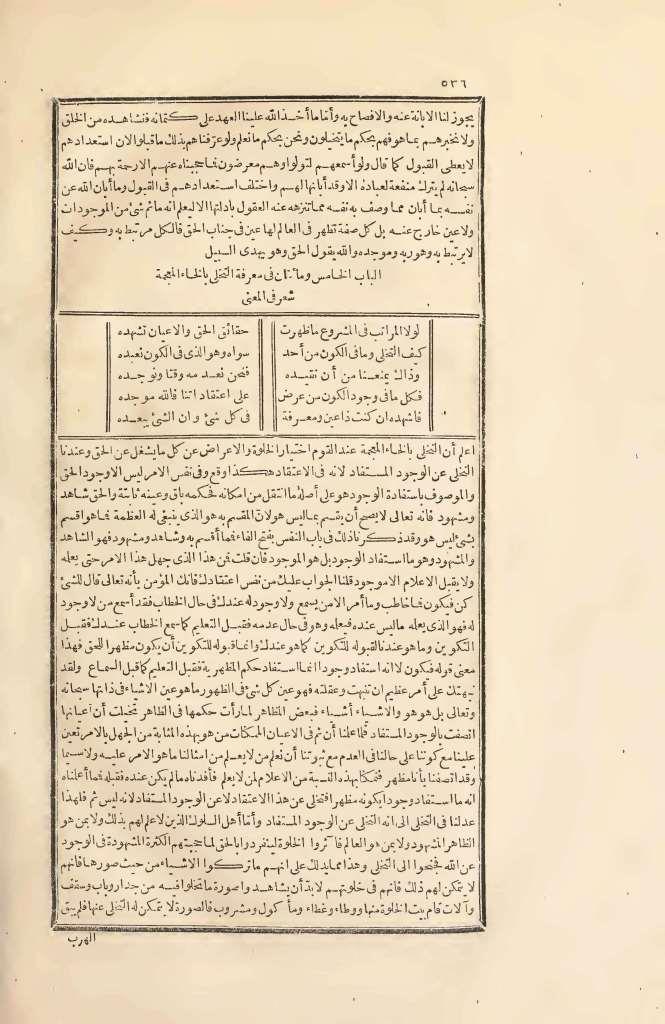 ٥٣٦
يجوز لنا الابانة عنه والافصاح به وأما ما أخذ الله علينا العهد على كتمانه فنشاهده من الخلق
ولا نخبرهم بما هو فهم بحكم ما يتخيلون ونحن بحكم ما نعلم ولو عرّفناهم بذلك ما قبلوا لان استعدادهم
لا يعطى القبول كما قال ولو أسمعهم لتولوا وهم معرضون فما حجبناه عنهم الا رحمة بهم فان الله
سبحانه لم يترك منفعة لعباده الا وقد أبانها لهم واختلف استعدادهم فى القبول وما أبان الله عن
نفسه بما أبان مما وصف به نفسه مما تنزهه عنه العقول بأدلتها الا ليعلم انه ماثم شئ من الموجودات
ولا عين خارج عنه بل كل صفة تظهر فى العالم لها عين فى جناب الحق فالكل مرتبط به وكيف
لا يرتبط به وهو ربه وموجده والله يقول الحق وهو يهدى السبيل
الباب الخامس ومائتان فى معرفة التخلى بالخاء المعجمة
شعر فى المعنى
لولا المراتب فى المشروع ما ظهرت حقائق الحق والاعيان تشهده
كيف التخلى وما فى الكون من أحد سواه وهو الذى فى الكون نعبده
وذاك يمنعنا من أن نقيده فنحن نعدمه وقتا ونوجده
فكل ما فى وجود الكون من عرض على اعتقاداتنا فالله موجده
فاشهده ان كنت ذا عين ومعرفة فى كل شئ وان الشئ يعبده
اعلم أن التخلى بالخاء المعجمة عند القوم اختيار الخلوة والاعراض عن كل ما يشغل عن الحق وعندنا
التخلى عن الوجود المستفاد لانه فى الاعتقاد هكذا وقع وفى نفس الامر ليس الا وجود الحق
والموصوف باستفادة الوجود هو على أصله ما انتقل من امكانه فحكمه باق وعينه ثابتة والحق شاهد
ومشهود فانه تعالى لا يصح أن يقسم بما ليس هو لان المقسم به هو الذى ينبغى له العظمة فما هو أقسم
بشئ ليس هو وقد ذكرنا ذلك فى باب النفس بفتح الفاء فما أقسم به وشاهد ومشهود فهو الشاهد
والمشهود وهو ما استفاد الوجود بل هو الموجود فان قلت فمن هذا الذى جهل هذا الامر حتى يعلمه
ولا يقبل الاعلام الا موجود قلنا الجواب عليك من نفس اعتقادك فانك المؤمن بأنه تعالى قال للشئ
كن فيكون فما خاطب وما أمر الا من يسمع ولا وجود له عندك فى حال الخطاب فقد أسمع من لا وجود
له فهو الذى يعلمه ما ليس عنده فيعلمه وهو فى حال عدمه فقبل التعليم كما سمع الخطاب عندك فقبل
التكوين وما هو عندنا قبوله للتكوين كما هو عندك وانما قبوله للتكوين أن يكون مظهرا للحق فهذا
معنى قوله فيكون لا انه استفاد وجودا انما استفاد حكم المظهرية فقبل التعليم كما قبل السماع ولقد
نبهتك على أمر عظيم ان تنبهت وعقلته فهو عين كل شئ فى الظهور ما هو عين الاشياء فى ذاتها سبحانه
وتعالى بل هو هو والاشياء أشياء فبعض المظاهر لما رأت حكمها فى الظاهر تخيلت أن أعيانها
اتصفت بالوجود المستفاد فلما علمنا أن ثم فى الاعيان الممكنات من هو بهذه المثابة من الجهل بالامر تعين
علينا مع كوننا على حالنا فى العدم مع ثبوتنا أن نعلم من لا يعلم من أمثالنا ما هو الامر عليه ولا سيما
وقد اتصفنا بأنا مظهر فتمكنا بهذه النسبة من الاعلام لمن لا يعلم فأفدناه ما لم يكن عنده فقبله فما أعلمناه
انه ما استفاد وجودا بكونه مظهرا فتخلى عن هذا الاعتقاد لا عن الوجود المستفاد لانه ليس ثم فلهذا
عدلنا فى التخلى الى انه التخلى عن الوجود المستفاد وأما أهل السلوك الذين لا علم لهم بذلك ولا بمن هو
الظاهر المشهود ولا بمن هو العالم فآثروا الخلوة لينفردوا بالحق لما حجبتهم الكثرة المشهودة فى الوجود
عن الله فجنحوا الى التخلى وهذا مما يدلك على انهم ما تركوا الاشياء من حيث صورها فانهم
لا يتمكن لهم ذلك فانهم فى خلوتهم لا بد أن يشاهدوا صورة ما تخلوا فيه من جدار وباب وسقف
وآلات قام بيت الخلوة منها ووطاء وغطاء ومأكول ومشروب فالصورة لا يتمكن له التخلى عنها فلم يبق
الهرب